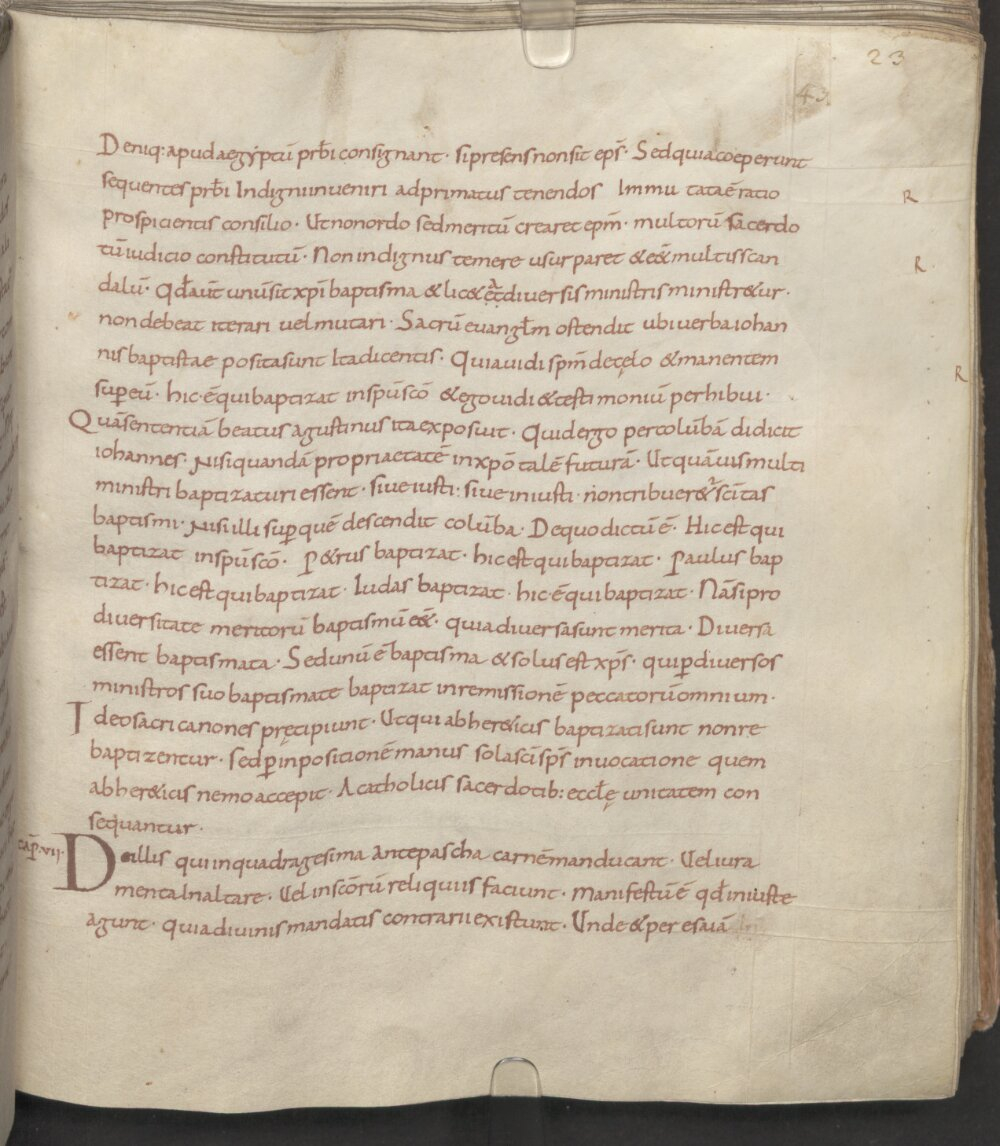 23
43
Deniq: apud aegyptū prb̄i consignant · si presens non sit ep̄s · Sed quia coeperunt
sequentes prb̄i Indigni inveniri ad primatus tenendos Immutata ē ratio
R
prospicientis consilio · Ut non ordo sed meritū crearet ep̄m · multorū sacerdo
tū iudicio constitutū · Non indignus temere usurparet & eē& multis scan
R
dalū · Qđ aut̄ unū sit xp̄i baptisma & lic& diversis ministris ministr&ur ·
non debeat iterari vel mutari · Sacrū evangl̄m ostendit ubi verba iohan
nis baptistae posita sunt Ita dicentis · Quia vidi sp̄m de cęlo & manentem
R
super eū · hic · ē qui baptizat in sp̄u sc̄o & ego vidi & testimonium perhibui ·
Quā sententiā beatus agustinus ita exposuit · Quid ergo per colūbā didicit
iohannes · Nisi quandā propriaetatē in xp̄o talē futurā · Ut quāvis multi
ministri baptizaturi essent · sive iusti : sive iniusti · non tribuer&ur scītas
baptismi · Nisi illi sup̱ quē descendit colūba · De quo dictū ē · Hic est qui
baptizat in sp̄u sc̄o · P&rus baptizat · hic est qui baptizat · Paulus bap
tizat · hic est qui baptizat · Iudas baptizat · hic · ē qui baptizat · Nā si pro
diversitate meritorū baptismū eē& · quia diversa sunt merita · Diversa
essent baptismata · Sed unū ē baptisma & solus est xp̄s · qui p̱ diversos
ministros suo baptismate baptizat in remissionē peccatorū omnium ·
Ideo sacri canones pręcipiunt · Ut qui ab her&icis baptizati sunt non re
baptizentur · sed p̱ inpositionē manus sola sc̄i sp̄s invocatione quem
ab her&icis nemo accepit · A catholicis sacerdotib: eccl̄ę unitatem con
sequantur ·
cap̄ · vii ·
De illis qui in quadragesima ante pascha carnē manducant · Vel iura
menta In altare · Vel in sc̄orū reliquiis faciunt · manifestū ē qđ iniuste
agunt · quia divinis mandatis contrarii existunt · Unde & per esaiā